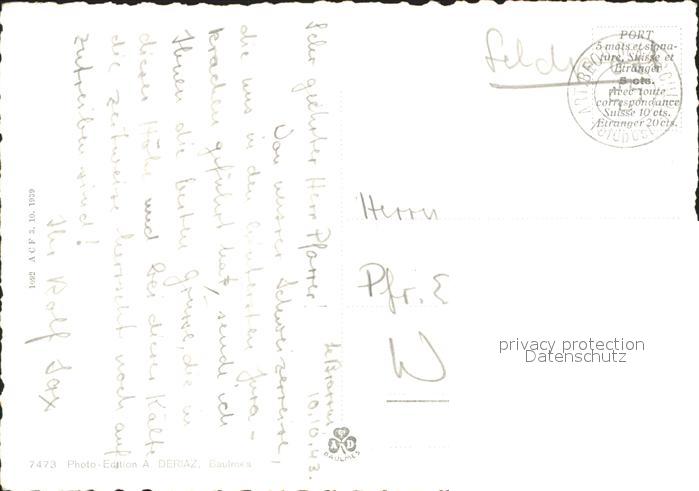 Le Brassus,
10.10.43.
Sehr geehrter Herr Pfarrer!
Von unserer Schweizerreise,
die uns in den hintersten Jura-
krachen geführt hat, sende ich
Ihnen die besten Grüsse, die in
dieser Höhe und bei dieser Kälte
die zeitweise herrscht noch auf-
zutreiben sind!
Ihr Rolf Sax
PORT
5 mots et signa-
ture, Suisse et
Etranger
5 cts.
Avec toute
correspondance
Suisse 10 cts.
Etranger 20 cts.
Herrn
Pfr. E
W
privacy protection
Datenschutz
1692 A C F 3. 10. 1939
A D
BAULMES
7473 Photo-Edition A. DERIAZ, Baulmes